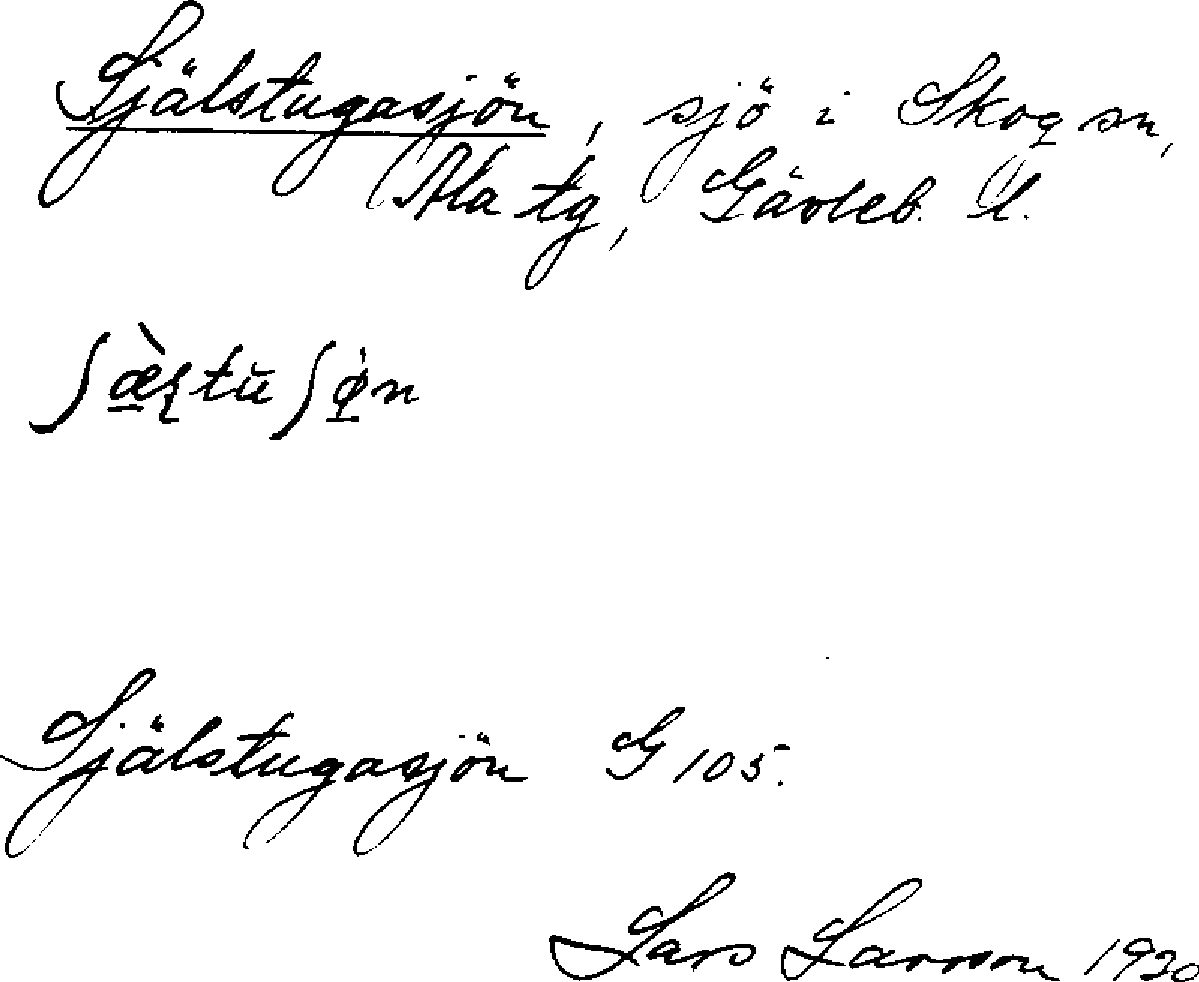 Själstugasjön, sjö i Skog sn,
Ala tg, Gävleb. l.
Själstugasjön G 105.
Lars Larsson 1920